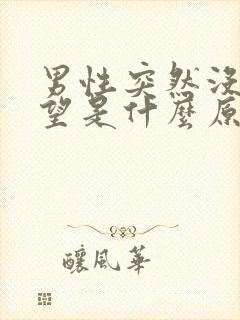 男性突然没
望是什麼原
釀風華